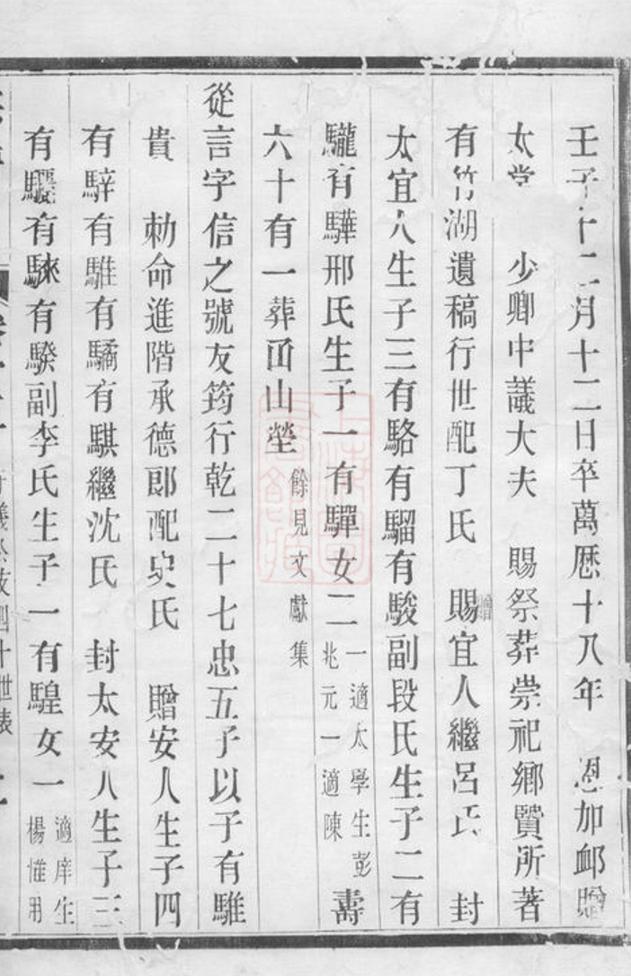 壬子十二月十二日卒萬曆十八年　恩加卹贈
太常　少卿中議大夫　賜祭葬崇祀鄉賢所著
有竹湖遺稿行世配丁氏　贈賜宜人繼呂氏　封
太宜人生子三有駱有騮有駿副段氏生子二有
驪有驊邢氏生子一有驒女二一適太學生彭兆元一適陳壽
六十有一葬㟁山塋餘見文獻集
從言字信之號友筠行乾二十七忠五子以子有騅
貴　勅命進階承德郎配史氏　贈安人生子四
有騂有騅有驈有騏繼沈氏　封太安人生子三
有騴有騋有騤副李氏生子一有騜女一適庠生楊惟用